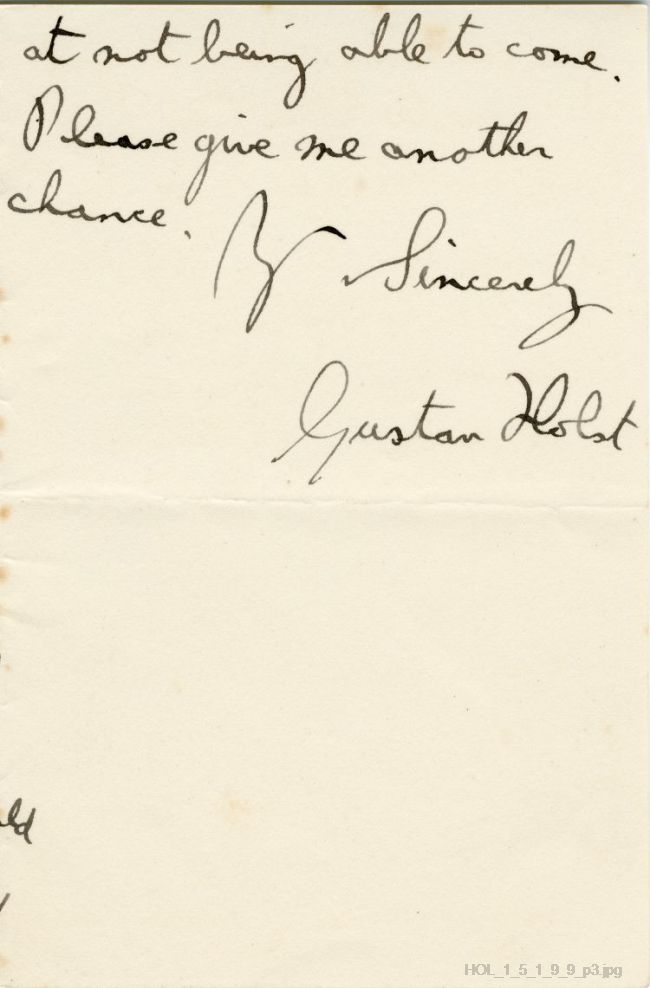 at not being able to come.
Please give me another
chance.
Yr Sincerely
Gustav Holst
ld
HOL_1_5_1_9_9_p3.jpg